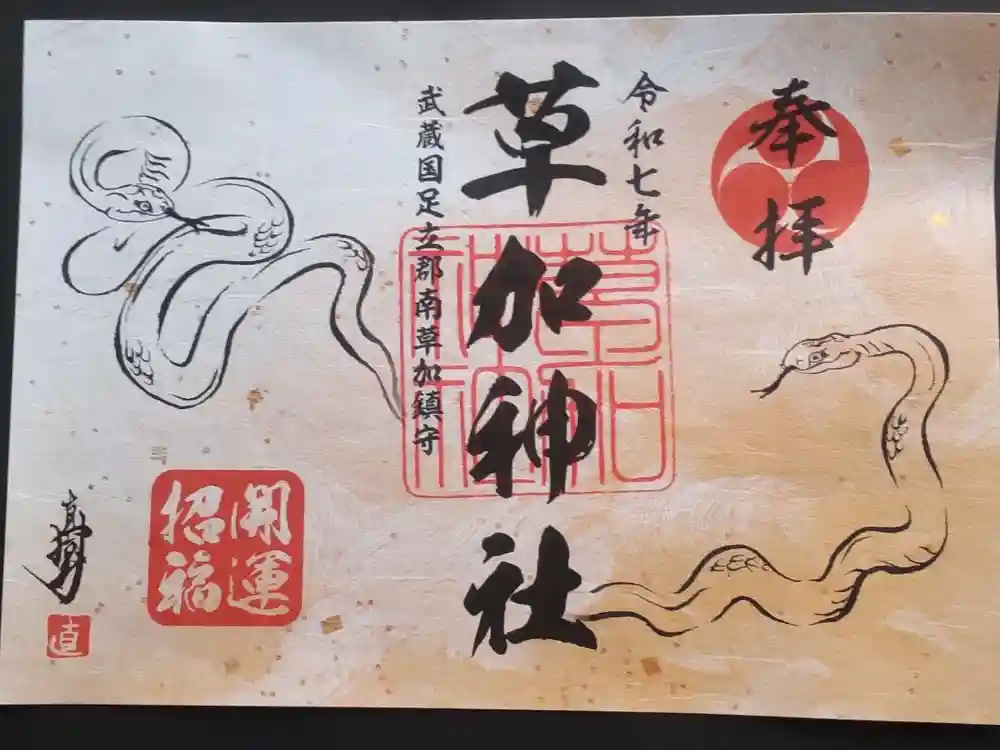 奉拝
令和七年
草加神社
武蔵国足立郡南草加鎮守
草加神社
開運
招福
直